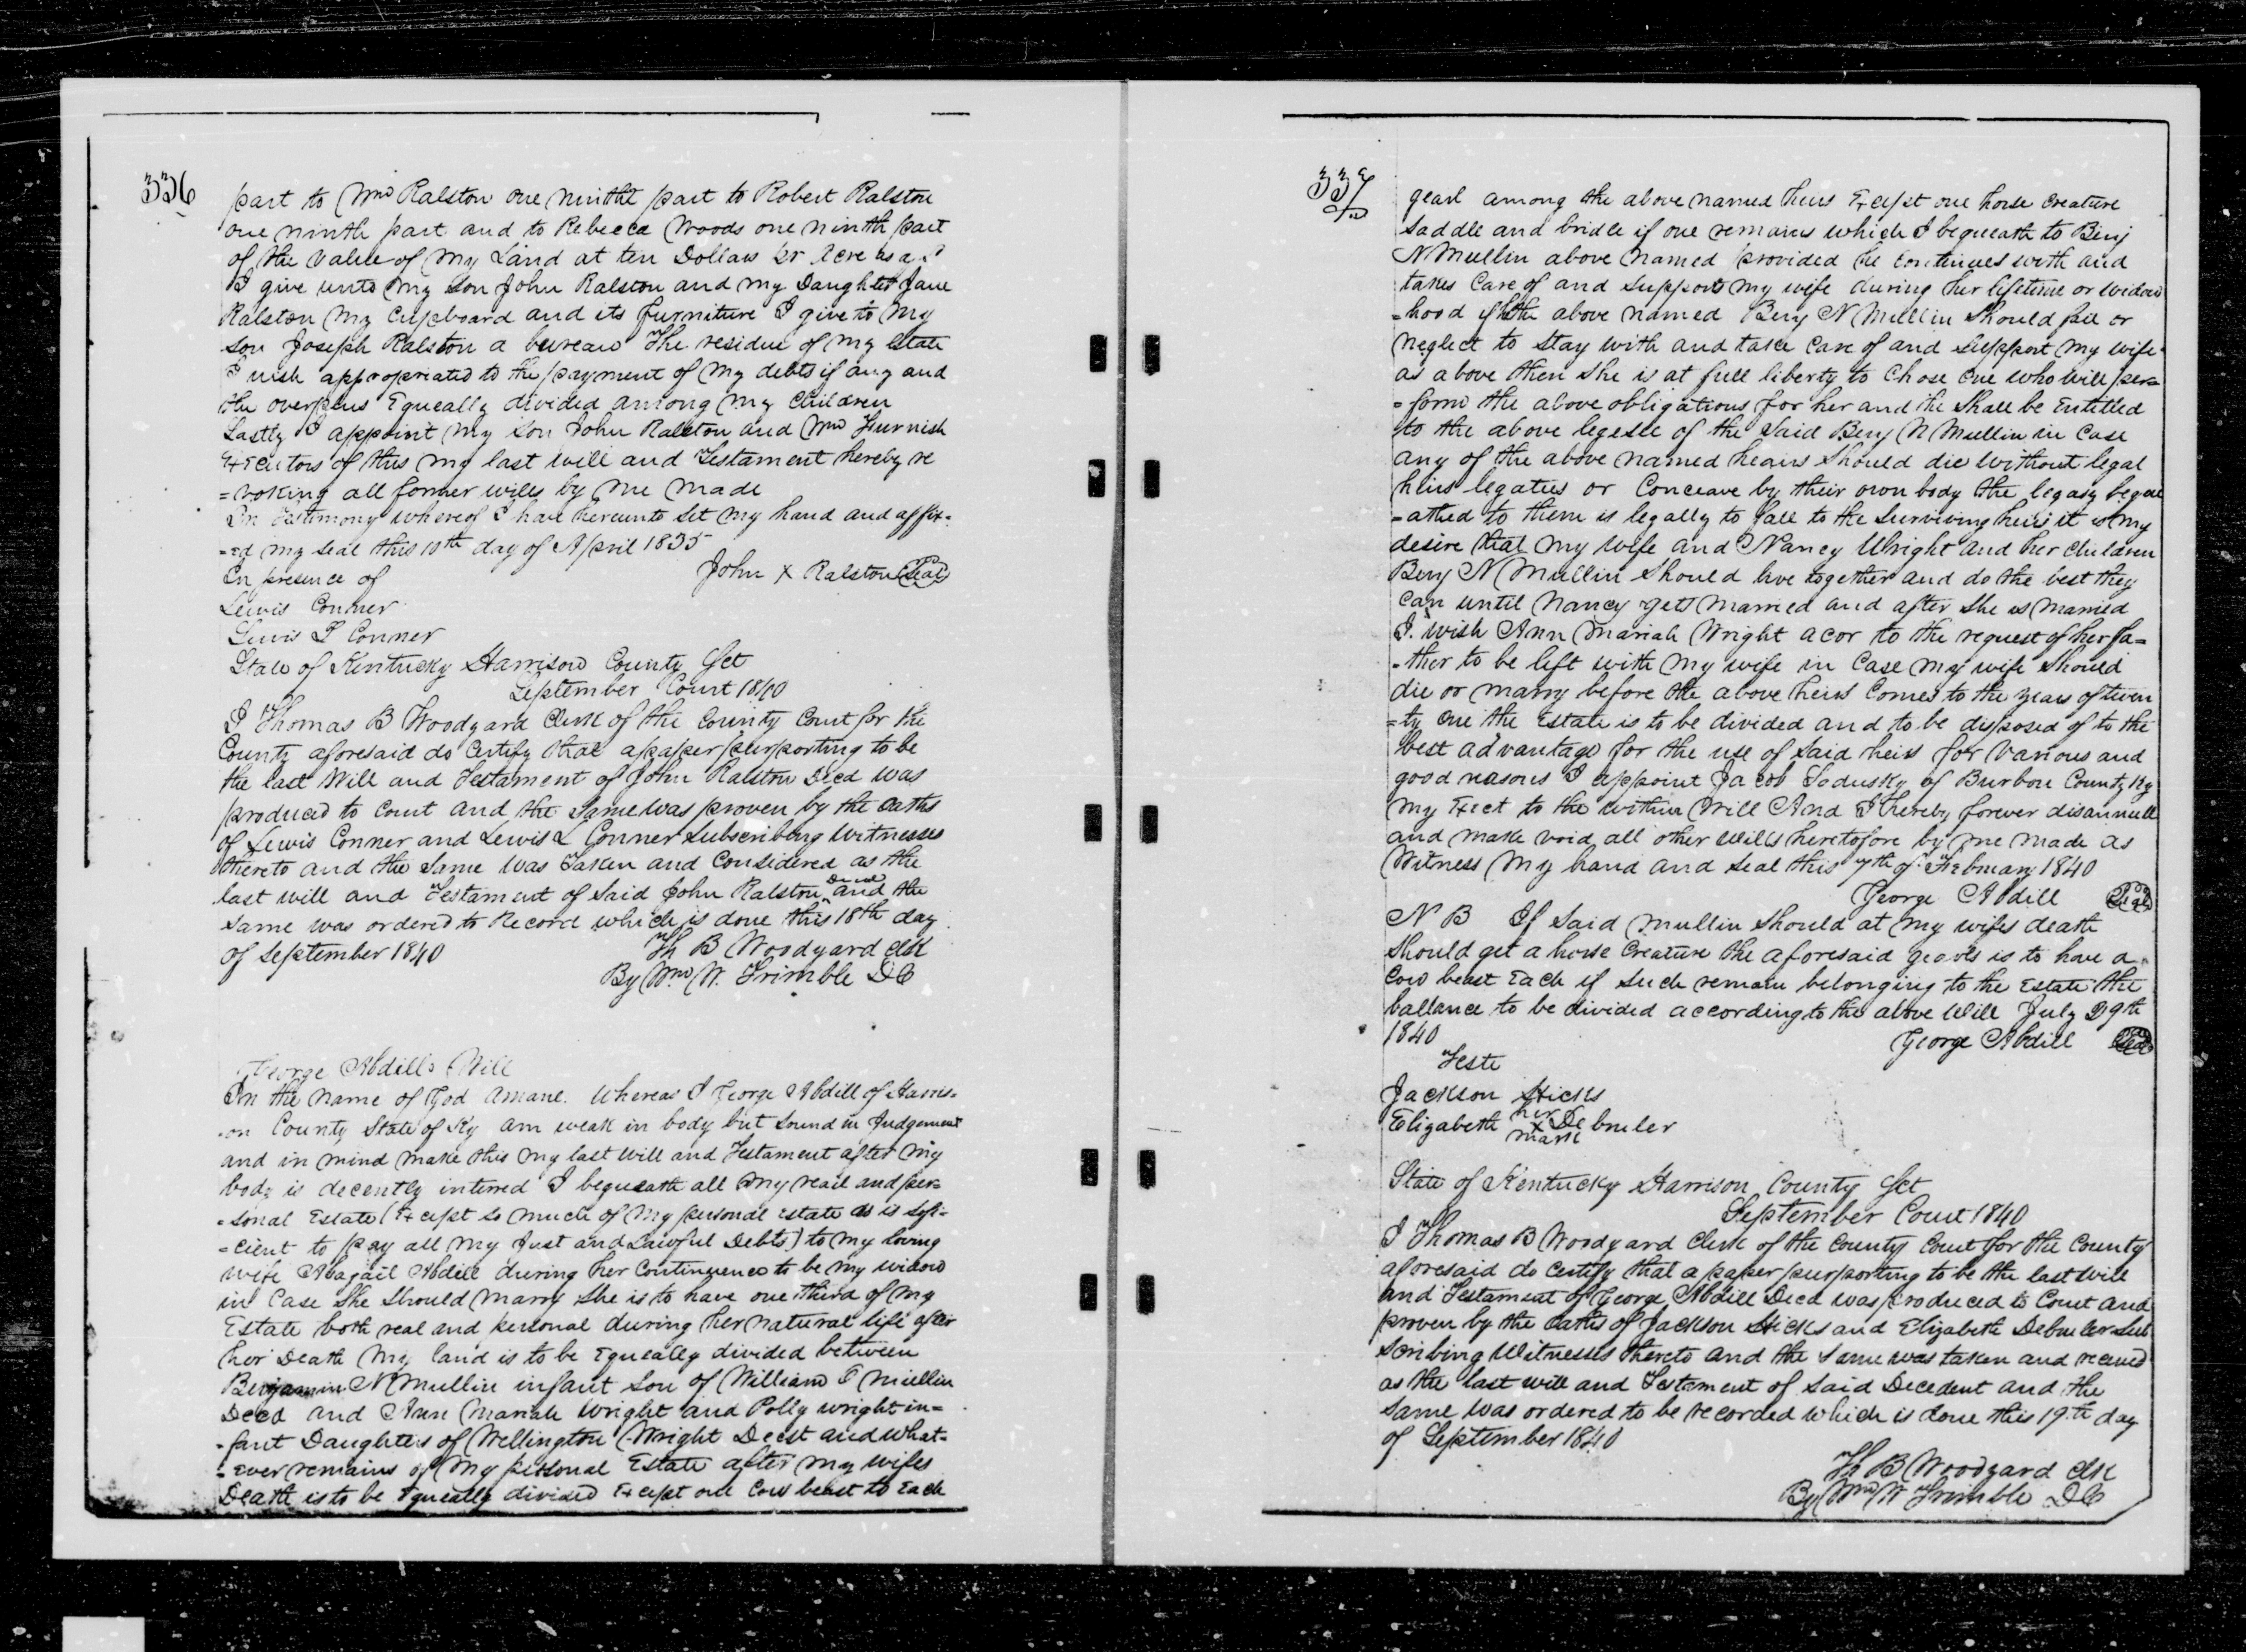 336
part to Wm Ralston one ninth part to Robert Ralston
one ninth part and to Rebecca Woods one ninth part
of the value of my Land at ten Dollars pr Acre
I give unto my son John Ralston and my Daughter Jane
Ralston my Cupboard and its furniture I give to my
son Joseph Ralston a bureau The residue of my Estate
I wish appropreated to the payment of my debts if any and
the overplus Equeally divided among my Children
Lastly I appoint my son John Ralston and Wm Furnish
Executors of this my last will and Testament hereby re
=voking all former wills by me made
In Testimony whereof I have hereunto set my hand and affix-
=ed my seal this 10th day of April 1835
John X Ralston Seal
In presence of
Lewis Conner
Lewis L Conner
State of Kentucky Harrison County Sct
September Court 1840
I Thomas B Woodyard Clerk of the County Court for the
County aforesaid do Certify that a paper purporting to be
the last Will and Testament of John Ralston Decd was
produced to Court and the same was proven by the oaths
of Lewis Conner and Lewis L Conner subscribing Witnesses
thereto and the same was Taken and Considered as the
last will and Testament of said John Ralston Decd and the
same was ordered to Record which is done this 18th day
of September 1840
Th B Woodyard Clk
By Wm W. Trimble DC
George Abdills Will
In the name of God Amane. Whereas I George Abdill of Harris-
-on County State of Ky am weak in body but sound in Judgement
and in mind make this my last will and Testament after my
body is decently interred I bequeath all my reail and per-
=sonal Estate (Except so much of my personal estate as is sufi-
=cient to pay all my Just and Lawful Debts) to my loving
wife Abagail Abdill during her Continuence to be my widow
in Case she should marry she is to have one third of my
Estate both real and personal during her natural life after
her Death my land is to be Equeally divided between
Benjamin N Mullin infant son of William T Mullin
Decd and Ann Mariah Wright and Polly Wright in=
-fant Daughters of Wellington Wright Decst and what-
-ever remains of my personal Estate after my wifes
Death is to be Equeally divided Except one Cow beast to Each
337
gearl among the above named heirs Except one horse Creature
saddle and bridle if one remains which I bequeath to Benj
N Mullin above named provided he continues with and
takes Care of and supports my wife during her lifetime or widow
=hood if the above named Benj N Mullin should fail or
neglect to stay with and take Care of and support my wife
as above then she is at full liberty to Chose one who will per-
=form the above obligations for her and he shall be Entitled
to the above legesee of the said Benj N Mullin in Case
any of the above named heairs should die without legal
heirs legatees or Conceave by their own body the legasy beque
-athed to them is legally to fall to the surviving heirs it is my
desire that my wife and Nancy Wright and her Children
Benj N Mullin should live together and do the best they
can until Nancy gets married and after she is married
I wish Ann Mariah Wright acor to the request of her fa=
-ther to be left with my wife in Case my wife should
die or marry before the above heirs Comes to the years of twen
=ty one the Estate is to be divided and to be disposed of to the
best advantage for the use of said heirs for various and
good reasons I appoint Jacob Sodusky of Burbon County Ky
my Exect to the within Will And I hereby forever disannull
and make void all other Wills heretofore by me made as
Witness my hand and seal this 7th of Febuary 1840
George Abdill Seal
N B If said Mullin should at my wifes death
should get a horse Creature the aforesaid gearls is to have a
Cow beast Each if such remain belonging to the Estate the
ballance to be divided according to the above Will July 29th
1840
George Abdill Seal
Teste
Jackson Hicks
Elizabeth her X mark Debruler
State of Kentucky Harrison County Sct
September Court 1840
I Thomas B Woodyard Clerk of the County Court for the County
aforesaid do Certify that a paper purporting to be the last Will
and Testament of George Abdill Decd was produced to Court and
proven by the oaths of Jackson Hicks and Elizabeth Debruler Sub
scribing Witnesses thereto and the same was taken and received
as the last will and Testament of said Decedent and the
same was ordered to be recorded which is done this 19th day
of September 1840
Th B Woodyard Clk
By Wm W Trimble DC